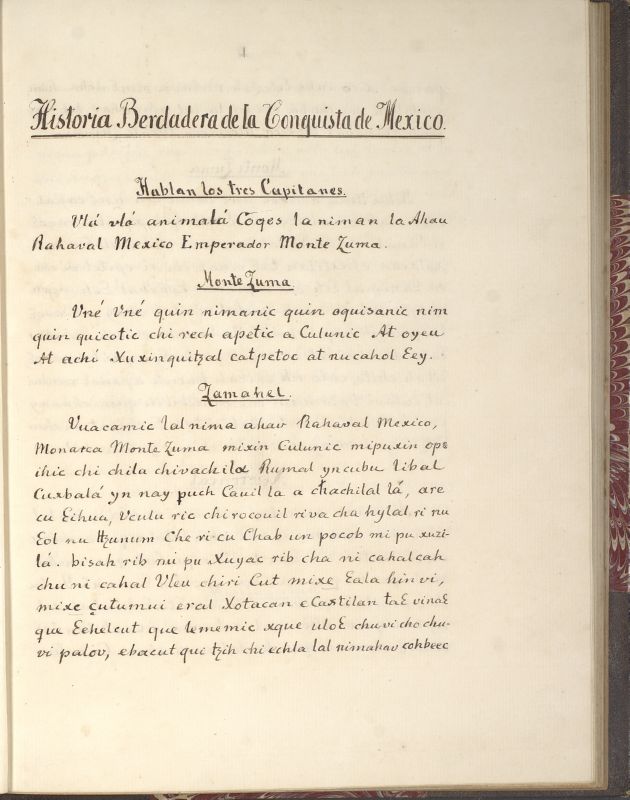 Historia Berdadera de la Conquista de Mexico.
Hablan los tres Capitanes.
Vlá vlá animalá Coqes la niman la Ahau
Rahaval Mexico Emperador Monte Zuma.
Monte Zuma.
Vné Vné quin nimanic quin oquisanic nim
quin quicotic chi rech apetic a Culunic At oyeu
At achí Xuxinquitzal catpetoc at nu cahol Eey.
Zamahel.
Vuacamic lal nima ahav Rahaval Mexico,
Monarca Monte Zuma mixin Culunic mipuxin ope
ihic chi chila chivachila Rumal yncubu libal
Cuxbalá yn nay puch Cauil la a chachilal lá, are
cu Eihua, Vculu ric chirocouil riva cha hylal ri nu
Eol nu tzunum Che ri cu Chab un pocob mi pu xuzi-
lá. bisah rib mi pu Xuyac rib cha ni cahal cah
chu ni cahal Vleu chiri Cut mixe Eala hin vi,
mixe cutumui eral Xotacan e Castilan taE vinaE
que Eehelcut que lememic xque uloE chu vi cho chu-
vi palov, ebacut qui tzih chi echla lal nimahav cohbeec